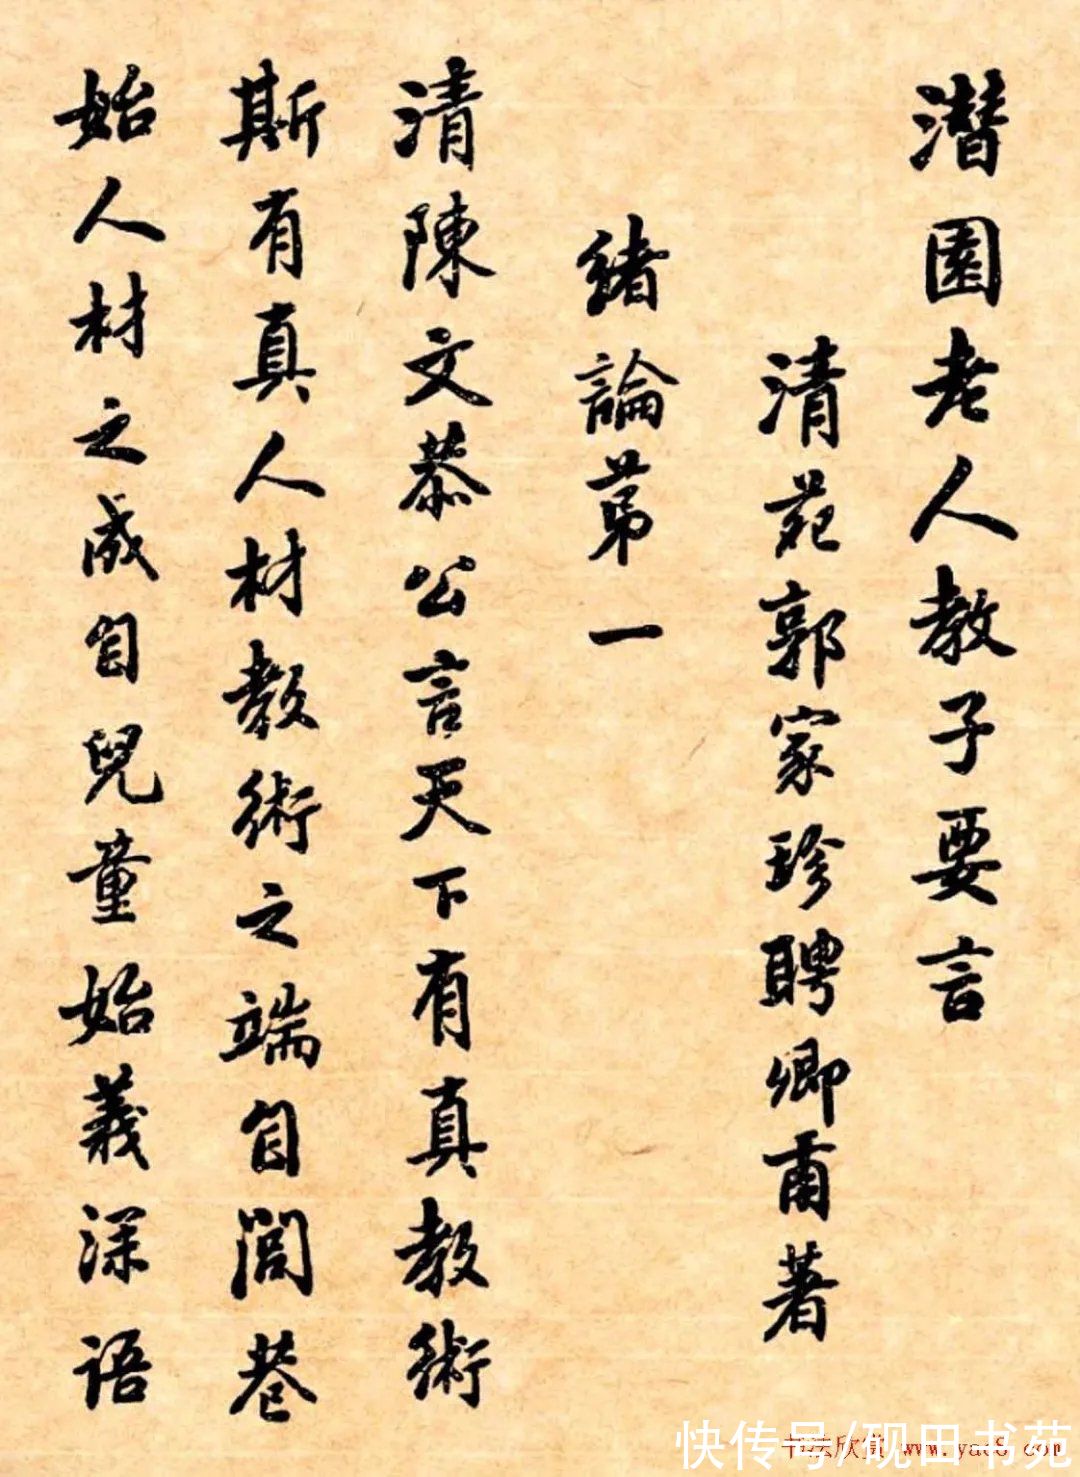 潛園老人教子要言
清苑郭家珍聘卿甫著
緒論第一
清陳文恭公言天下有真教術
斯有真人材教術之端自閭巷
始人材之成自兒童始義深语
快传号/砚田书苑
书法欣赏 www.yac8.com